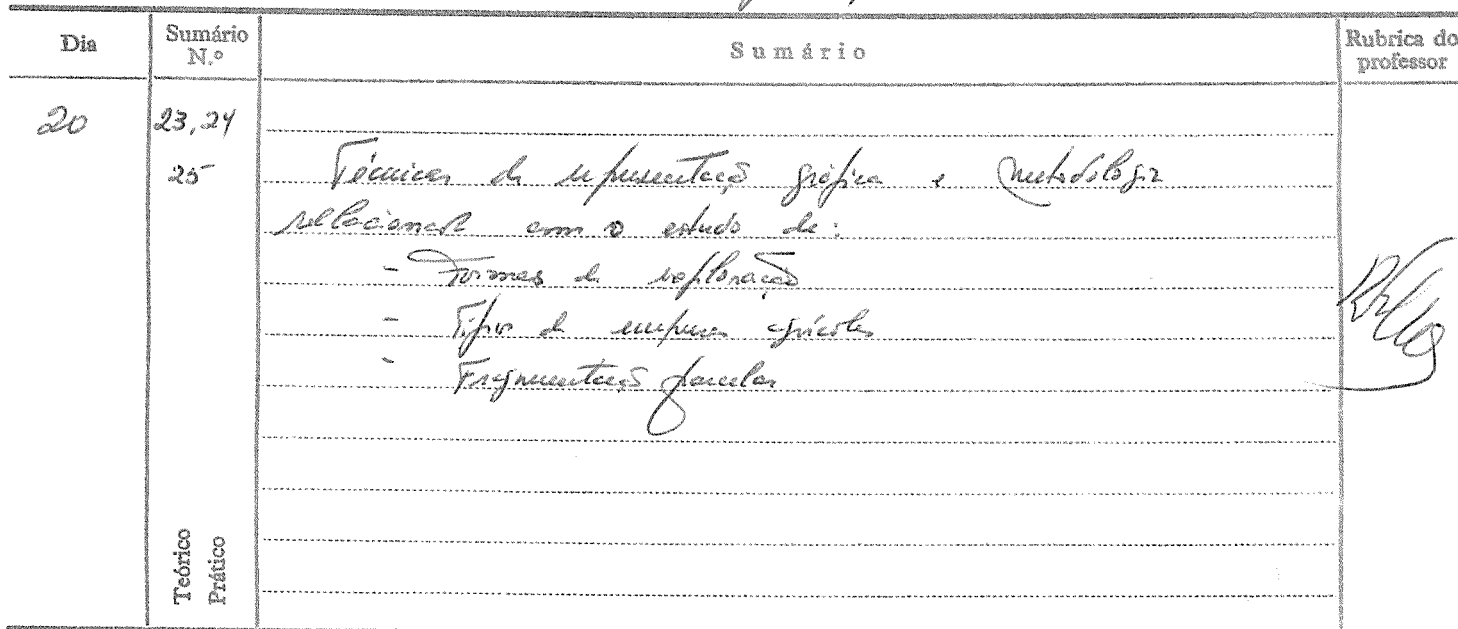 Dia
Sumário N.º
Sumário
Rubrica do professor
20
23, 24
25
Técnicas de representação gráfica e metodologia
relacionad com o estudo de:
- Formas de exploração
- Tipos de empresas agrícolas
- Fragmentação parcelar
Teórico
Prático